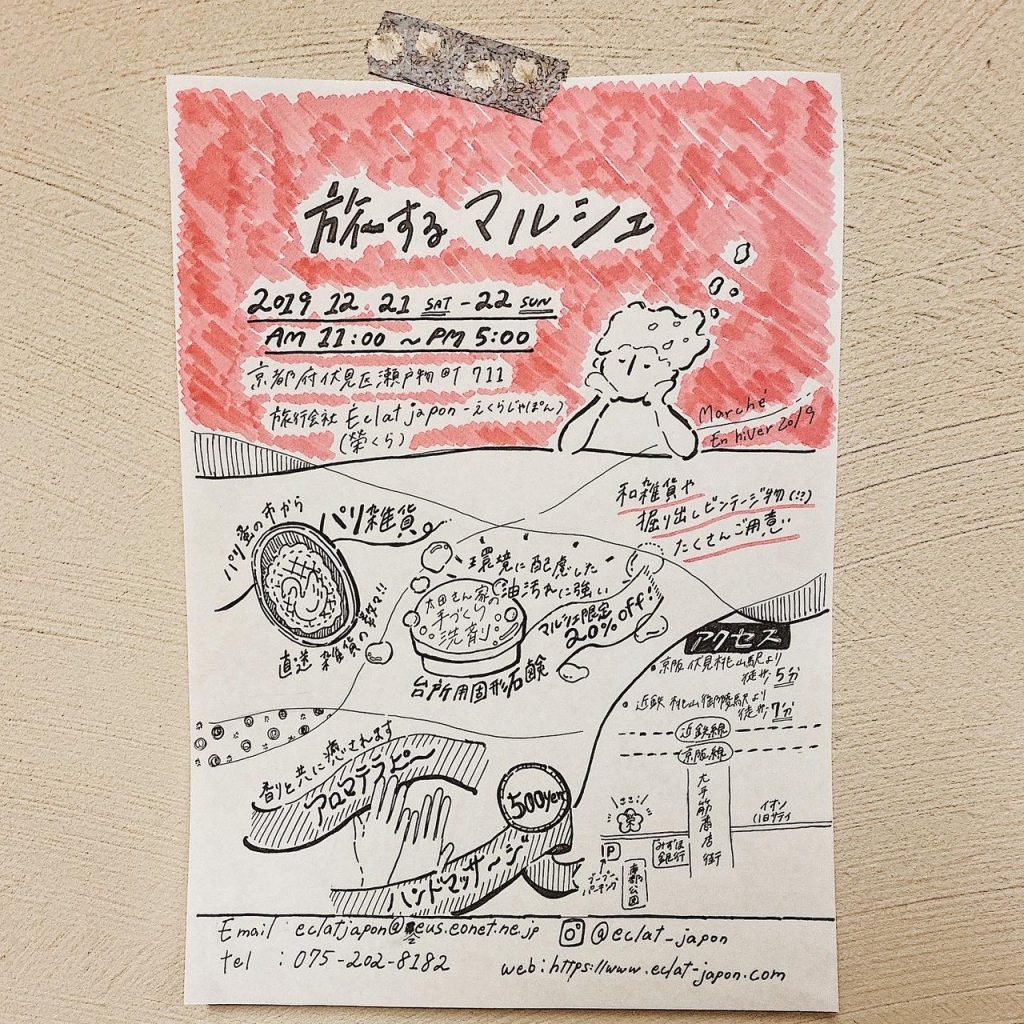 旅するマルシェ
2019 12. 21 SAT - 22 SUN
AM 11:00 ~ PM 5:00
京都府伏見区瀬戸物町 711
旅行会社 Eclat japon -えくらじゃぽん)
(榮くら)
Marché
En hiver 2019
和雑貨や
掘り出しビンテージ物(!?)
たくさんご用意
パリ蚤の市から
パリ雑貨
直送 雑貨の数々!!
環境に配慮した
油汚れに強い
太田さん家の
手づくり
洗剤
マルシェ限定
20% off!
台所用固形石鹸
アクセス
・京阪 伏見桃山駅より
徒歩 5分
・近鉄 桃山御陵駅より
徒歩 7分
近鉄線
京阪線
香りと共に癒されます
アロマテラピー
500yen
ハンドマッサージ
ここ!
榮
大手筋商店街
イオン
(旧サティ
みずほ
銀行
P
ブーブー
パーキング
公園
Email : eclatjapon@zeus.eonet.ne.jp
@eclat_japon
tel : 075-202-8182
web : https://www.eclat-japon.com